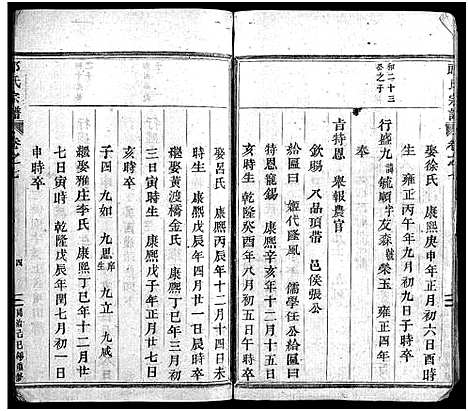 和二十三
癸之子
娶徐氏 康熙庚申年正月初六日酉時
生 雍正丙午年九月初九日子時卒
行盛九 諱毓順字友森號榮玉 雍正四年
吉時恩 舉報農官
欽賜 八品頂帶 邑侯張公
給匾曰 姬代隆風 儒學任公給匾曰
特恩寵錫 康熙辛亥年十二月十五日
亥時生 乾隆癸酉年八月初五日午時卒
娶呂氏 康熙戊辰年十二月十四日未
時生 康熙戊辰年四月廿一日辰時卒
繼娶黃渡橋金氏 康熙丁巳年三月初
三日寅時生 康熙戊子年正月廿七日
亥時卒
子四 九如 九思 九立 九咸
繼娶雅庄李氏 康熙丁巳年十二月廿
七日寅時 乾隆戊辰年閏七月初一日
申時卒
氏宗譜
卷之七
四